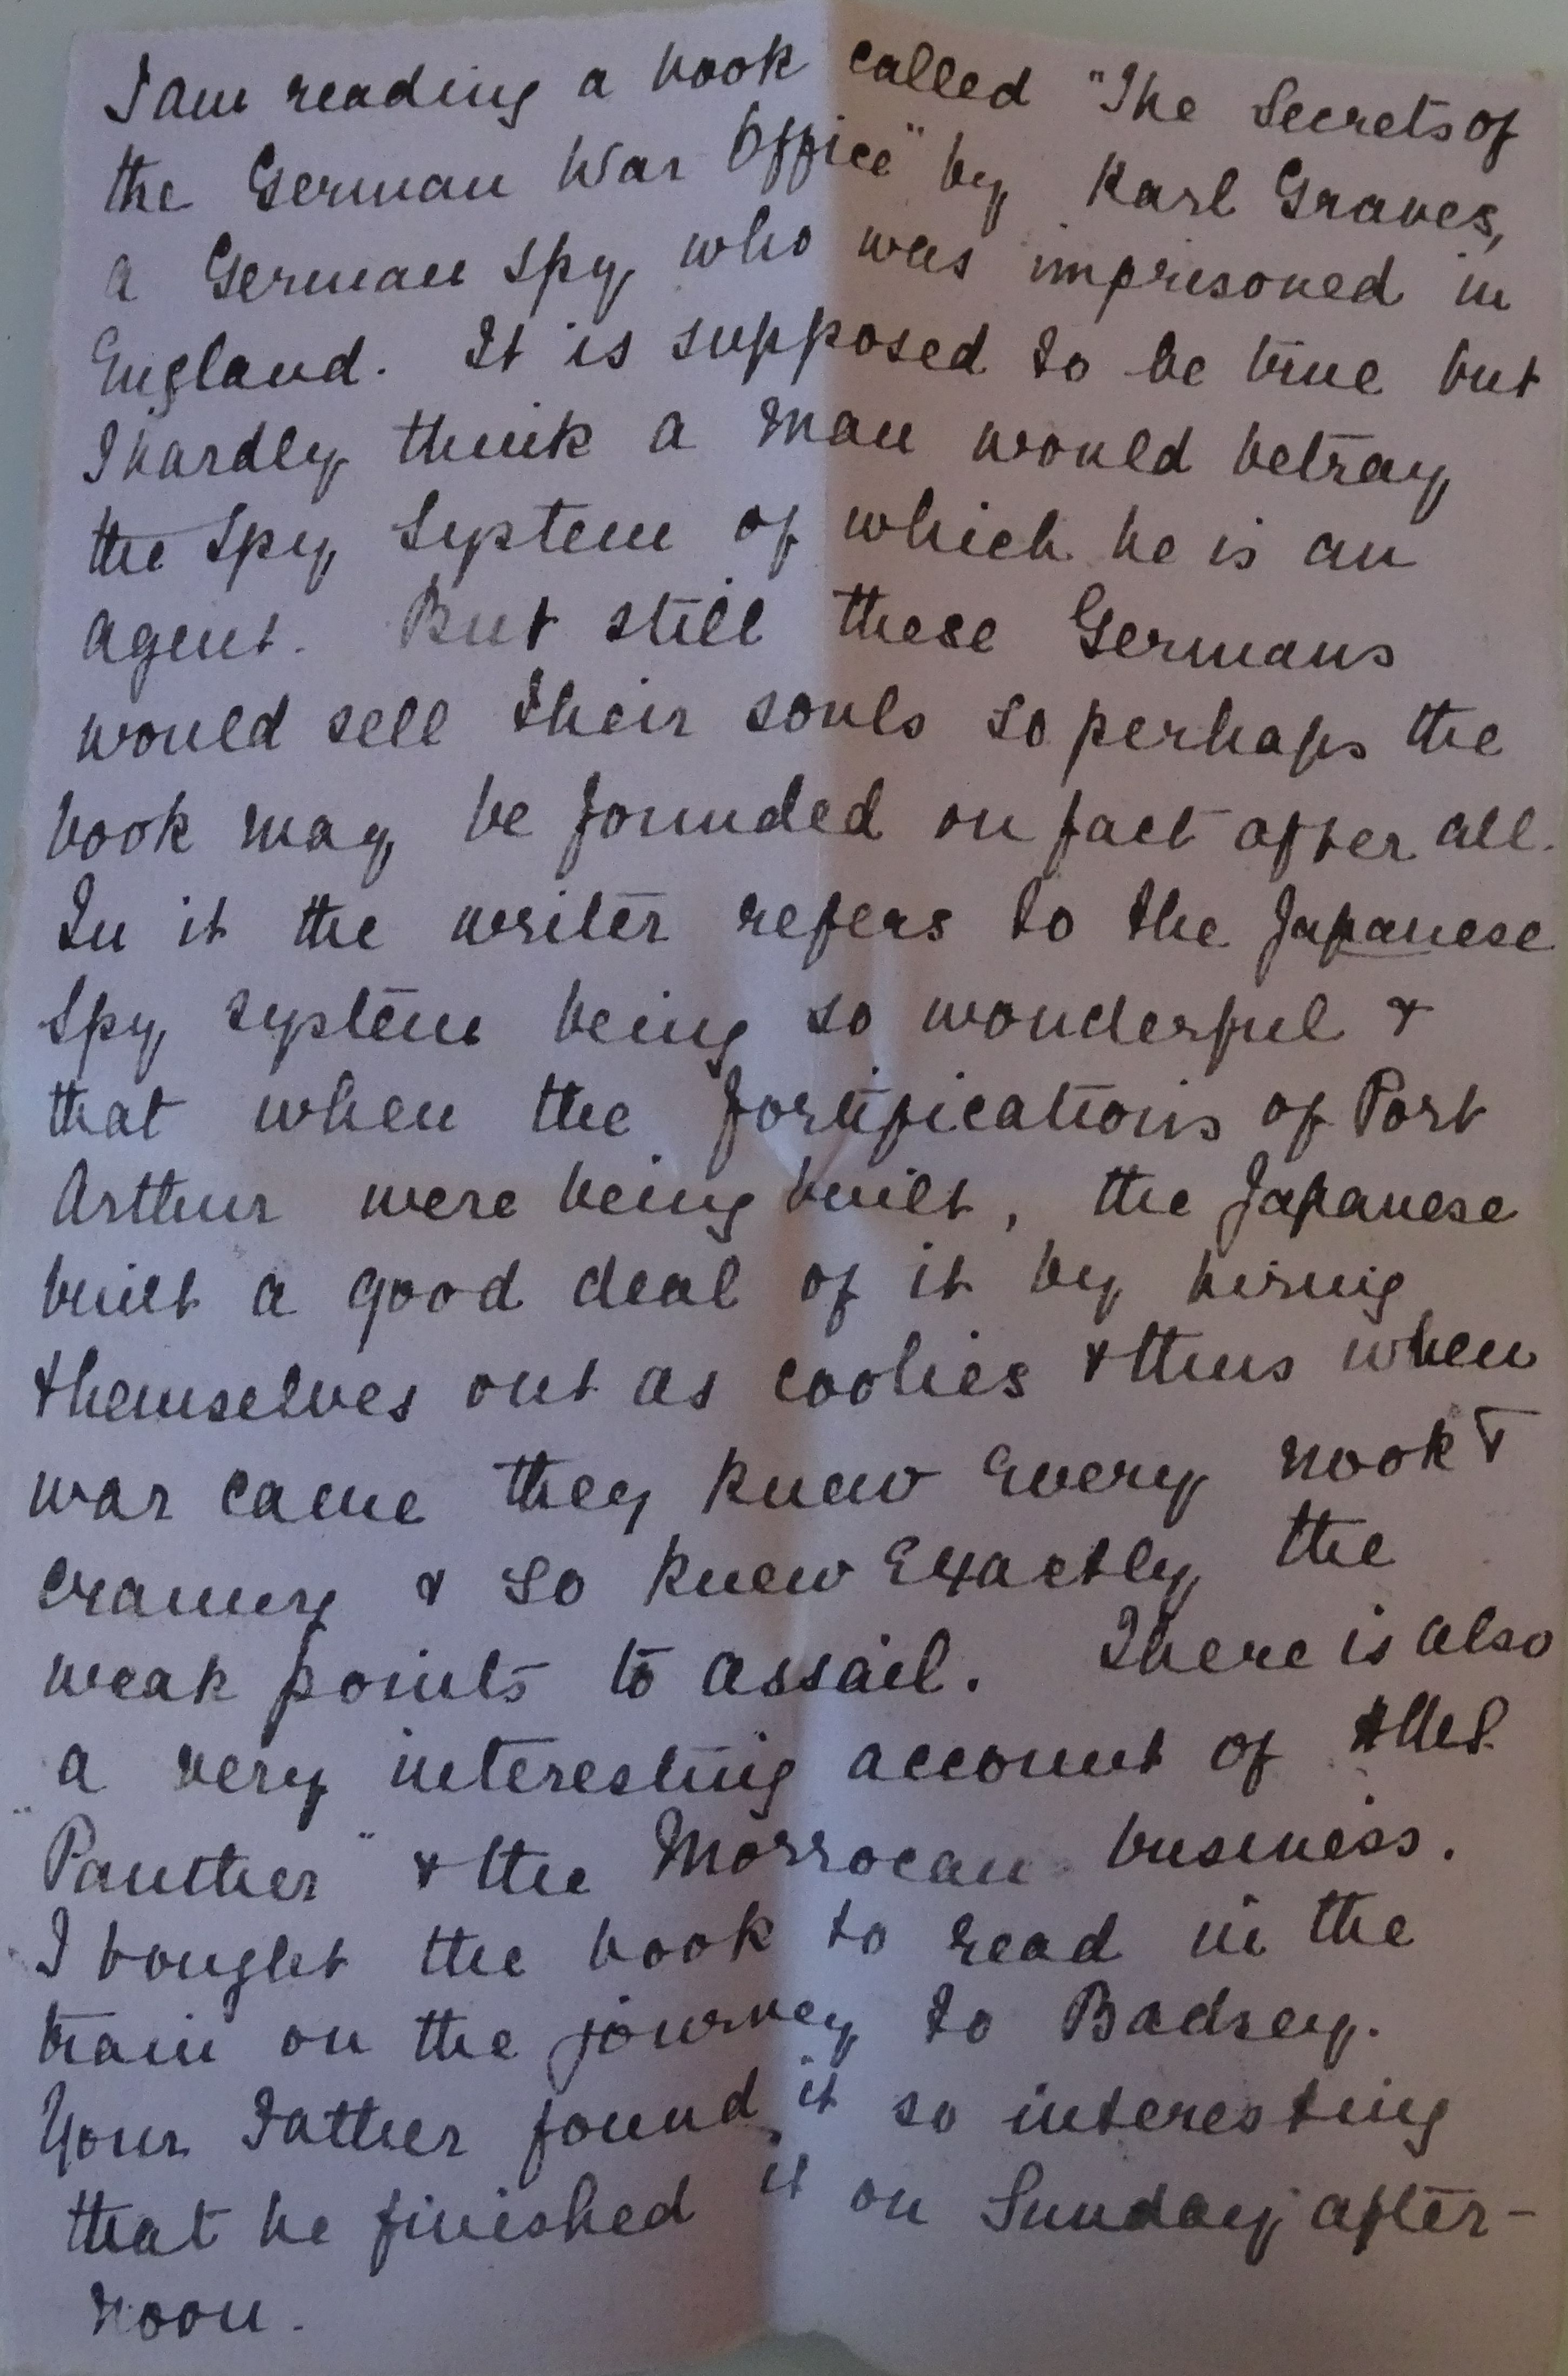 I am reading a book called "The Secrets of
the German War Office" by Karl Graves,
a German spy, who was imprisoned in
England. It is supposed to be true but
I hardly think a man would betray
the Spy System of which he is an
agent. But still these Germans
would sell their souls so perhaps the
book may be founded on fact after all.
In it the writer refers to the Japanese
Spy system being so wonderful &
that when the fortifications of Port
Arthur were being built, the Japanese
built a good deal of it by hiring
themselves out as coolies & thus when
war came they knew every nook &
cranny & so knew exactly the
weak points to assail. There is also
a very interesting account of the
"Panther" & the Morrocan business.
I bought the book to read in the
train on the journey to Badsey.
Your Father found it so interesting
that he finished it on Sunday after-
noon.